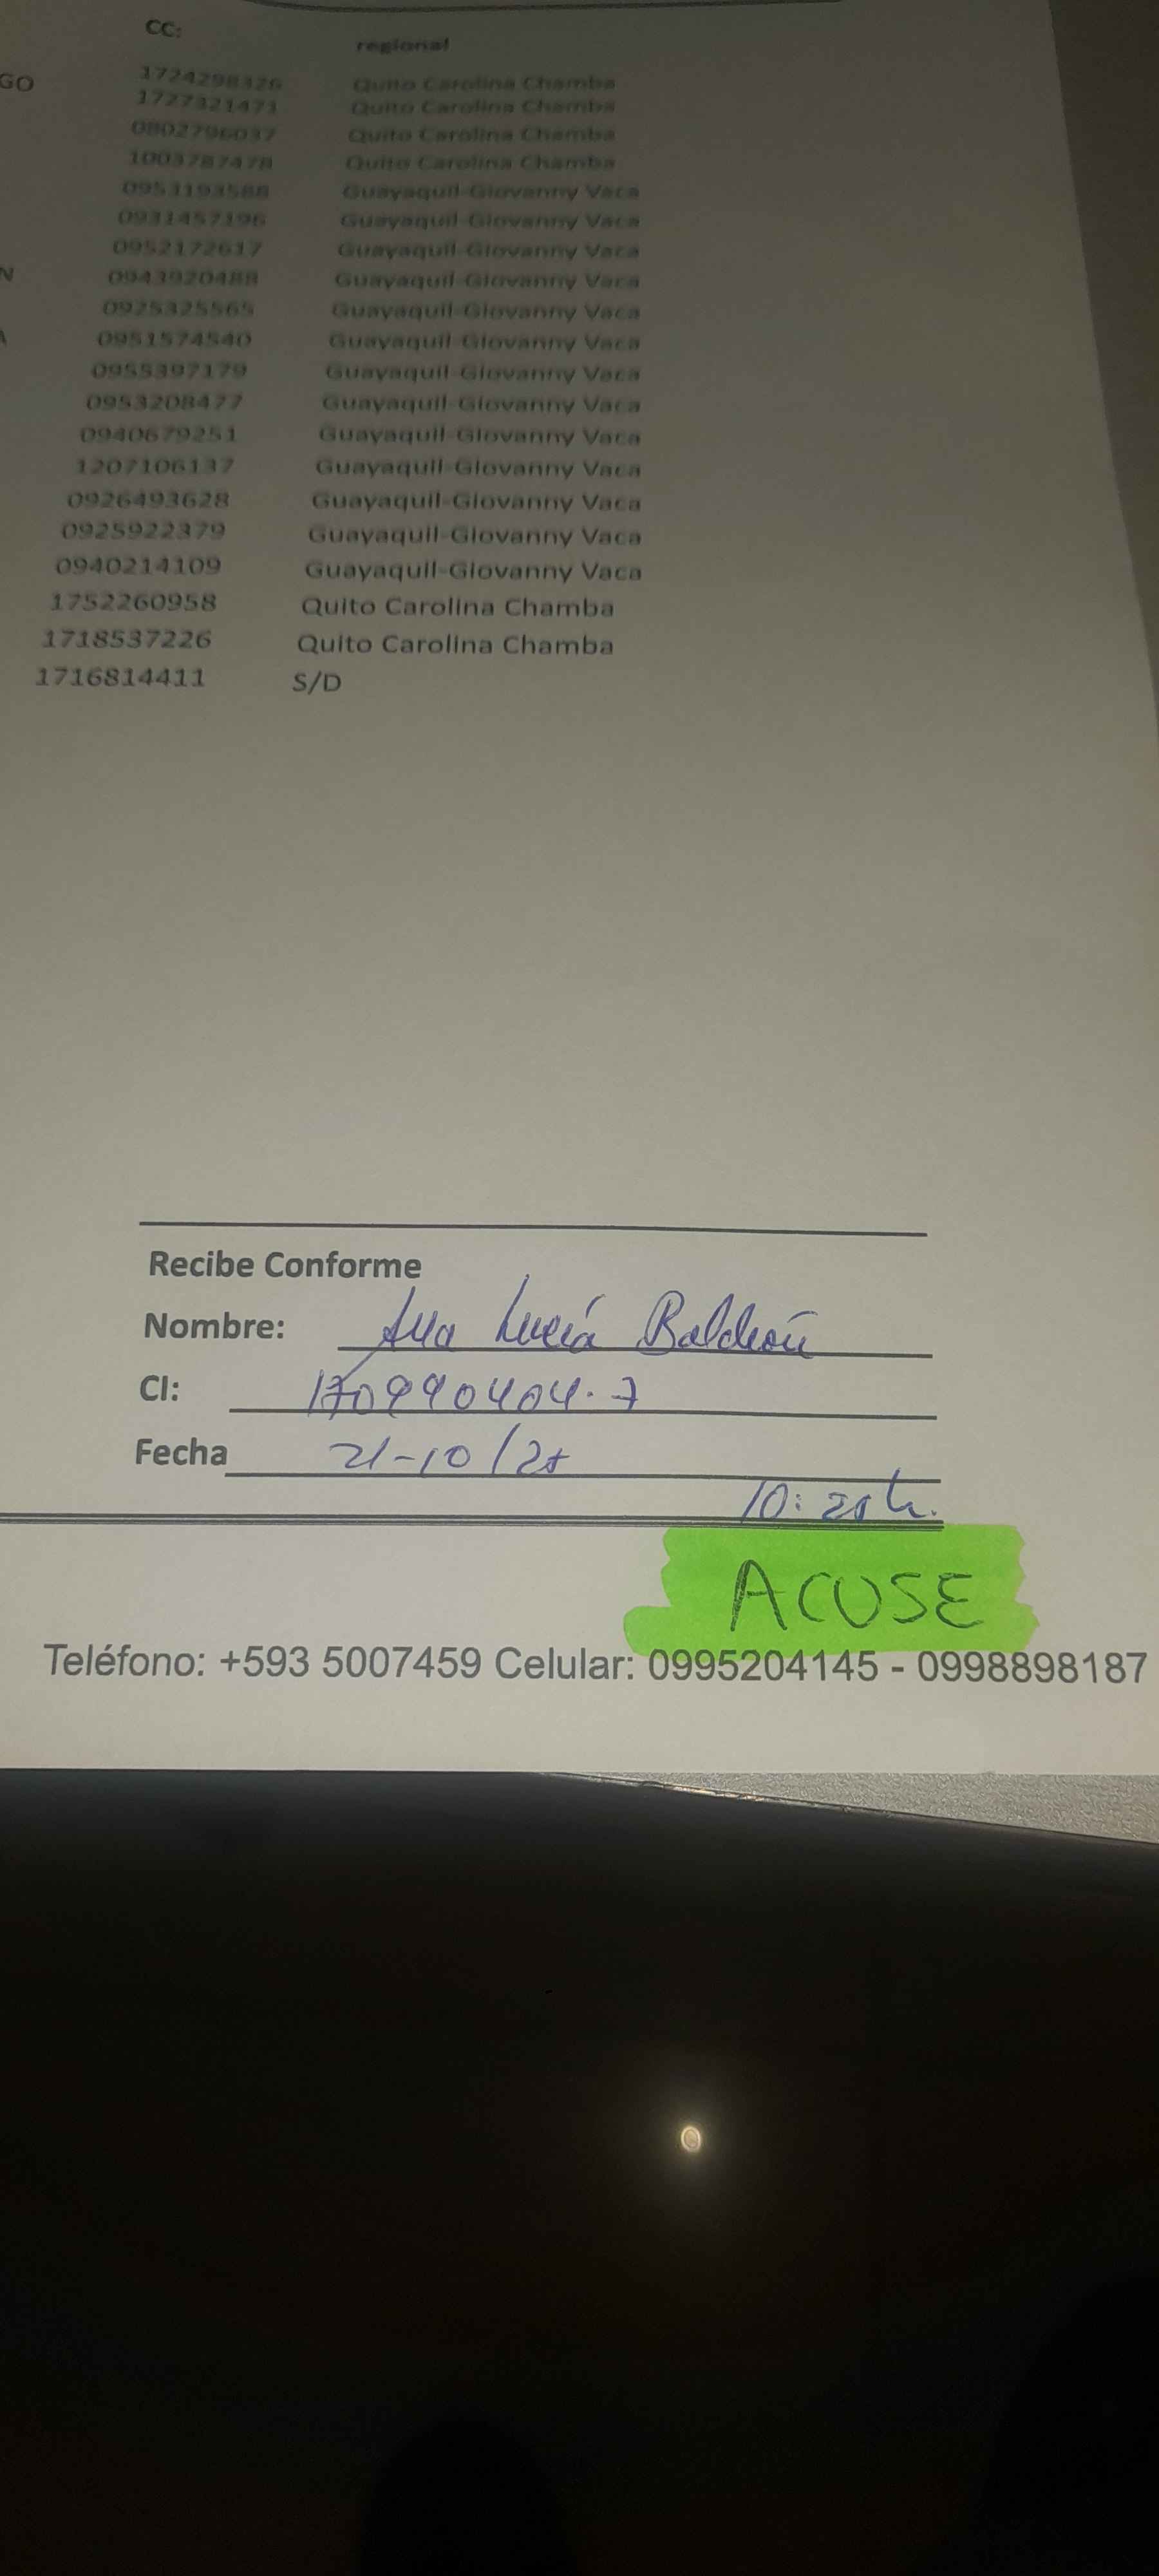 CC: regional
GO 1724298326 Quito Carolina Chamba
1727321471 Quito Carolina Chamba
0802796037 Quito Carolina Chamba
1003787478 Quito Carolina Chamba
0953193588 Guayaquil-Giovanny Vaca
0931457196 Guayaquil-Giovanny Vaca
0952172617 Guayaquil-Giovanny Vaca
N 0943920488 Guayaquil-Giovanny Vaca
0925325565 Guayaquil-Giovanny Vaca
A 0951574540 Guayaquil-Giovanny Vaca
0955397179 Guayaquil-Giovanny Vaca
0953208477 Guayaquil-Giovanny Vaca
0940679251 Guayaquil-Giovanny Vaca
1207106137 Guayaquil-Giovanny Vaca
0926493628 Guayaquil-Giovanny Vaca
0925922379 Guayaquil-Giovanny Vaca
0940214109 Guayaquil-Giovanny Vaca
1752260958 Quito Carolina Chamba
1718537226 Quito Carolina Chamba
1716814411 S/D
Recibe Conforme
Nombre: Ana Lucía
CI: 170990404-7
Fecha 21-10/25
ACUSE
Teléfono: +593 5007459 Celular: 0995204145 - 0998898187